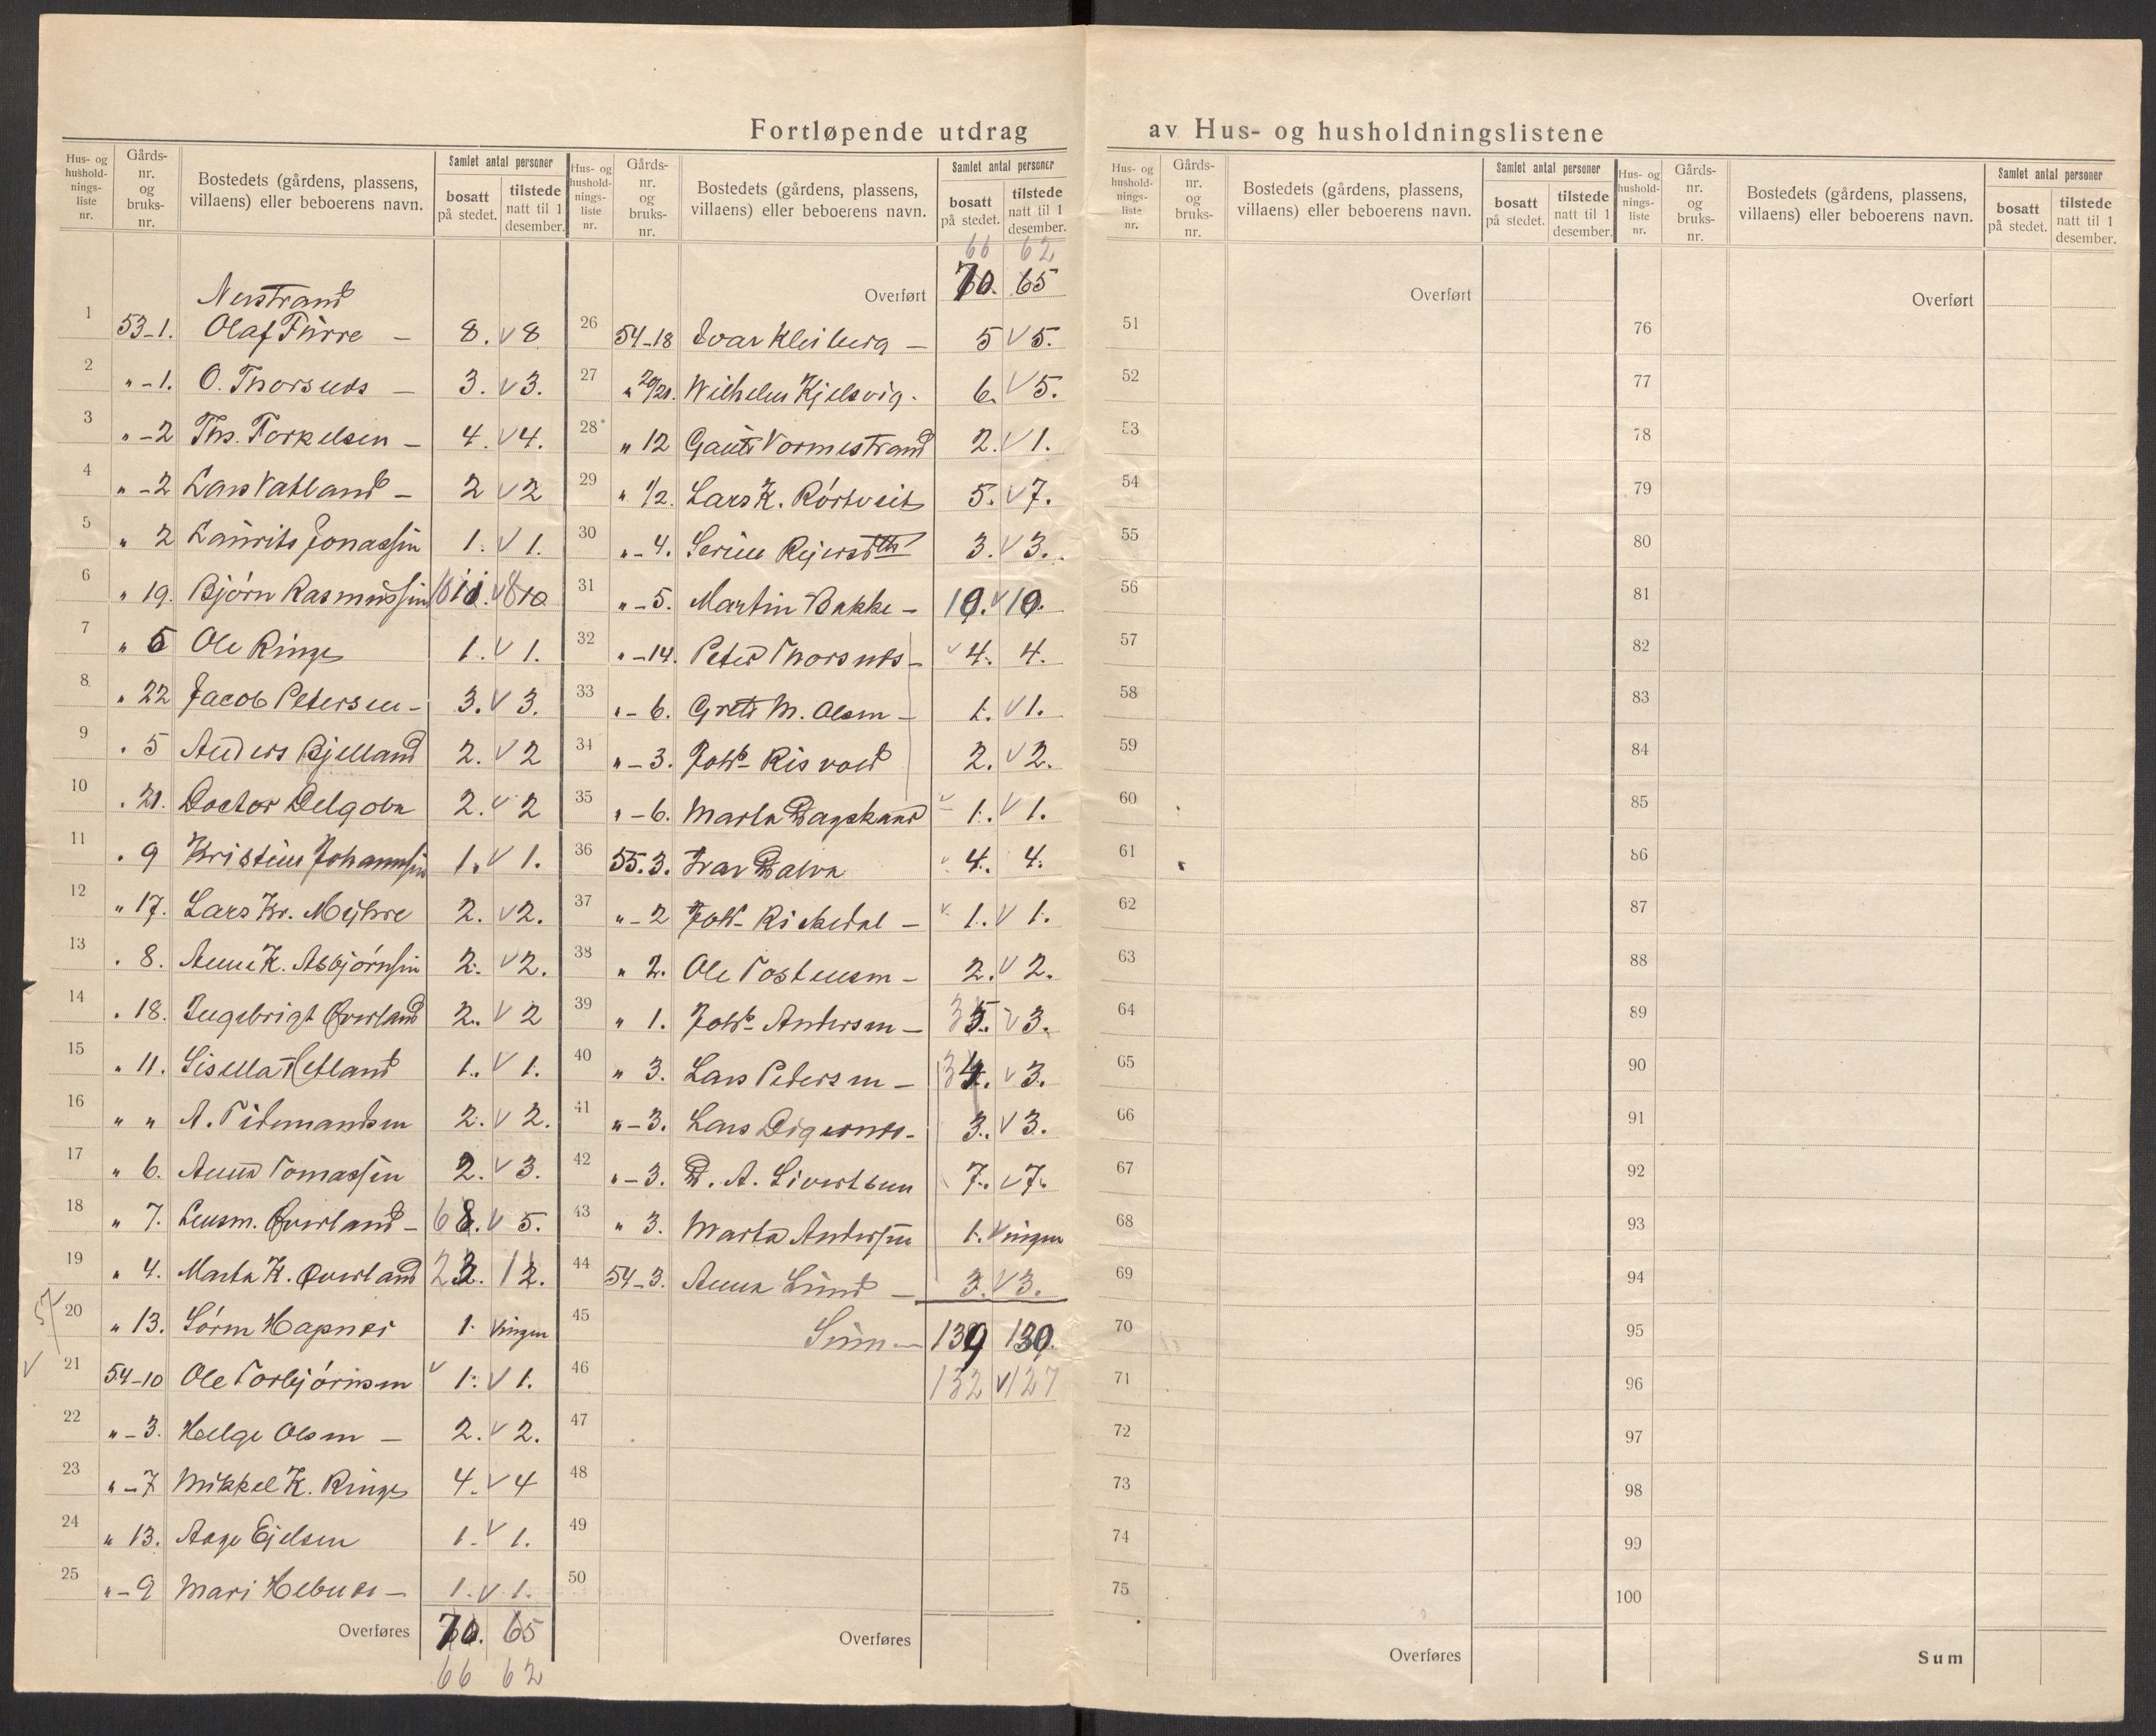 Fortløpende utdrag av Hus- og husholdningslistene
Hus- og hushold-nings-liste nr. Gårds-nr. og bruks-nr. Bostedets (gårdens, plassens, villaens) eller beboerens navn. Samlet antal personer bosatt på stedet. tilstede natt til 1 desember.
Nerstrand
1 53-1. Olaf Førre – 8. v 8
2 " -1. O. Thorsnes – 3. v 3.
3 " -2 Ths. Torkelsen – 4. v 4.
4 " -2 Lars Vatland – 2 v 2
5 " 2 Laurits Jonassen 1. v 1.
6 " 19. Bjørn Rasmussen 10 v 8 10
7 " 5 Ole Ringe 1. v 1.
8 " 22 Jacob Petersen – 3. v 3.
9 " 5 Anders Bjelland 2. v 2
10 " 21. Doctor Delgobe 2. v 2
11 " 9 Kristine Johannssen 1. v 1.
12 " 17. Lars Kr. Myhre 2. v 2.
13 " 8. Anne K. Asbjørnsen 2. v 2.
14 " 18. Ingebrigt Øverland 2. v 2
15 " 11. Hetland 1. v 1.
16 " " A. Tidemandsen 2. v 2.
17 " 6. Anna Tomassen 2. v 3.
18 " 7. Lensm. Øverland – 6 8. v 5.
19 " 4. Marta K. Øverland 2 3. 1 2.
20 " 13. Søren Hapnes 1. v ingen
21 54-10 Ole Torbjørnsen v 1. v 1.
22 " -3. Helge Olsen – 2. v 2.
23 " -7 Mikkel K. Ringe 4. v 4
24 " 13. Aage Ejelsen 1. v 1.
25 " -9 Mari Hebnes – 1. v 1.
Overføres 70. 65
66 62
Hus- og hushold-nings-liste nr. Gårds-nr. og bruks-nr. Bostedets (gårdens, plassens, villaens) eller beboerens navn. Samlet antal personer bosatt på stedet. tilstede natt til 1 desember.
66 62
Overført 70. 65
26 54-18 Ivar Kleiberg – 5 v 5.
27 " 20/21. Wilhelm Kjelsvig. 6. v 5.
28 " 12 Gaute Vormestrand 2. v 1.
29 " 1/2. Lars K. Rørtveit 5. v 7.
30 " -4. Serine Rejersdtr 3. v 3.
31 " -5. Martin Bakke – 10. v 10.
32 " -14. Peter Thorsnes – v 4. 4.
33 " -6. Grete M. Olsen – 1. v 1.
34 " -3. Johs Risvold 2. v 2.
35 " -6. Marta v 1. v 1.
36 55.3. Ivar Dalva v 4. 4.
37 " -2 Joh. Riskedal – v 1. v 1.
38 " 2. Ole Tostensen – 2. v 2.
39 " 1. Johs Andersen – 3 5. v 3.
40 " 3. Lars Petersen – 3 4. v 3.
41 " -3. Lars Digernes – 3. v 3.
42 " -3. D. A. Sivertsen 7. v 7.
43 " 3. Marta Andersen 1. v ingen
44 54-3. Anna Lund – 3. v 3.
45 Sum – 139 130.
46 132 v 127
47
48
49
50
Overføres
Hus- og hushold-nings-liste nr. Gårds-nr. og bruks-nr. Bostedets (gårdens, plassens, villaens) eller beboerens navn. Samlet antal personer bosatt på stedet. tilstede natt til 1 desember.
Overført
51
52
53
54
55
56
57
58
59
60
61
62
63
64
65
66
67
68
69
70
71
72
73
74
75
Overføres
Hus- og hushold-nings-liste nr. Gårds-nr. og bruks-nr. Bostedets (gårdens, plassens, villaens) eller beboerens navn. Samlet antal personer bosatt på stedet. tilstede natt til 1 desember.
Overført
76
77
78
79
80
81
82
83
84
85
86
87
88
89
90
91
92
93
94
95
96
97
98
99
100
Sum